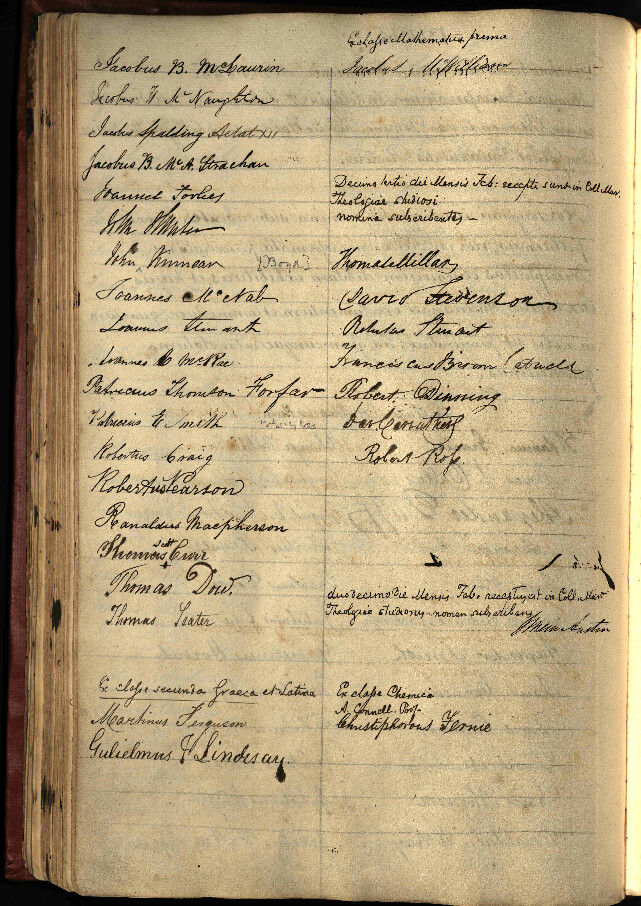 Jacobus B. McLaurin
Jacobus W McNaughton
Jacobus Spalding Aetat XII
Jacobus B. Mc A. Strachan
Joannes
John
John Kinnear [Boyd]
Joannes McNab
Joannes Stuart
Joannes C McRae
Patricius Thomson Forfar
Patricius E Smith
Robertus Craig
Robertus Pearson
Ranaldus Macpherson
Thomas Scott Currr
Thomas Dow.
Thomas Seater
Ex classe secunda Graeca et Latina
Martinus Ferguson
Gulielmus J Lindesay.
Ex classe Mathematica prima
Jacobus
Decimo tertio die Mensis Feb: recepti sunt in Coll. Mar.
Theologiae studiosi
nomina subscribentes –
Thomas Millar
David Stevenson
Robertus Stuart
Franciscus Brown
Robert Dinning
Robert Ross
duodecimo Die Mensis Feb. receptus est in Coll. Mar
Theologiae studiosus nomen subscribens
Ex classe Chemica
A. Connell Prof.
Christophorous Fernie